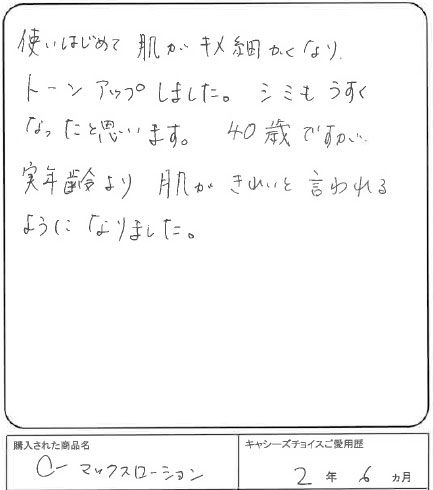 使いはじめて 肌が キメ細かくなり、
トーンアップしました。 シミも うすく
なったと思います。 40歳ですが、
実年齢より 肌が きれいと 言われる
ように なりました。
購入された商品名
C-マックスローション
キャシーズチョイスご愛用歴
2 年 6 ヵ月